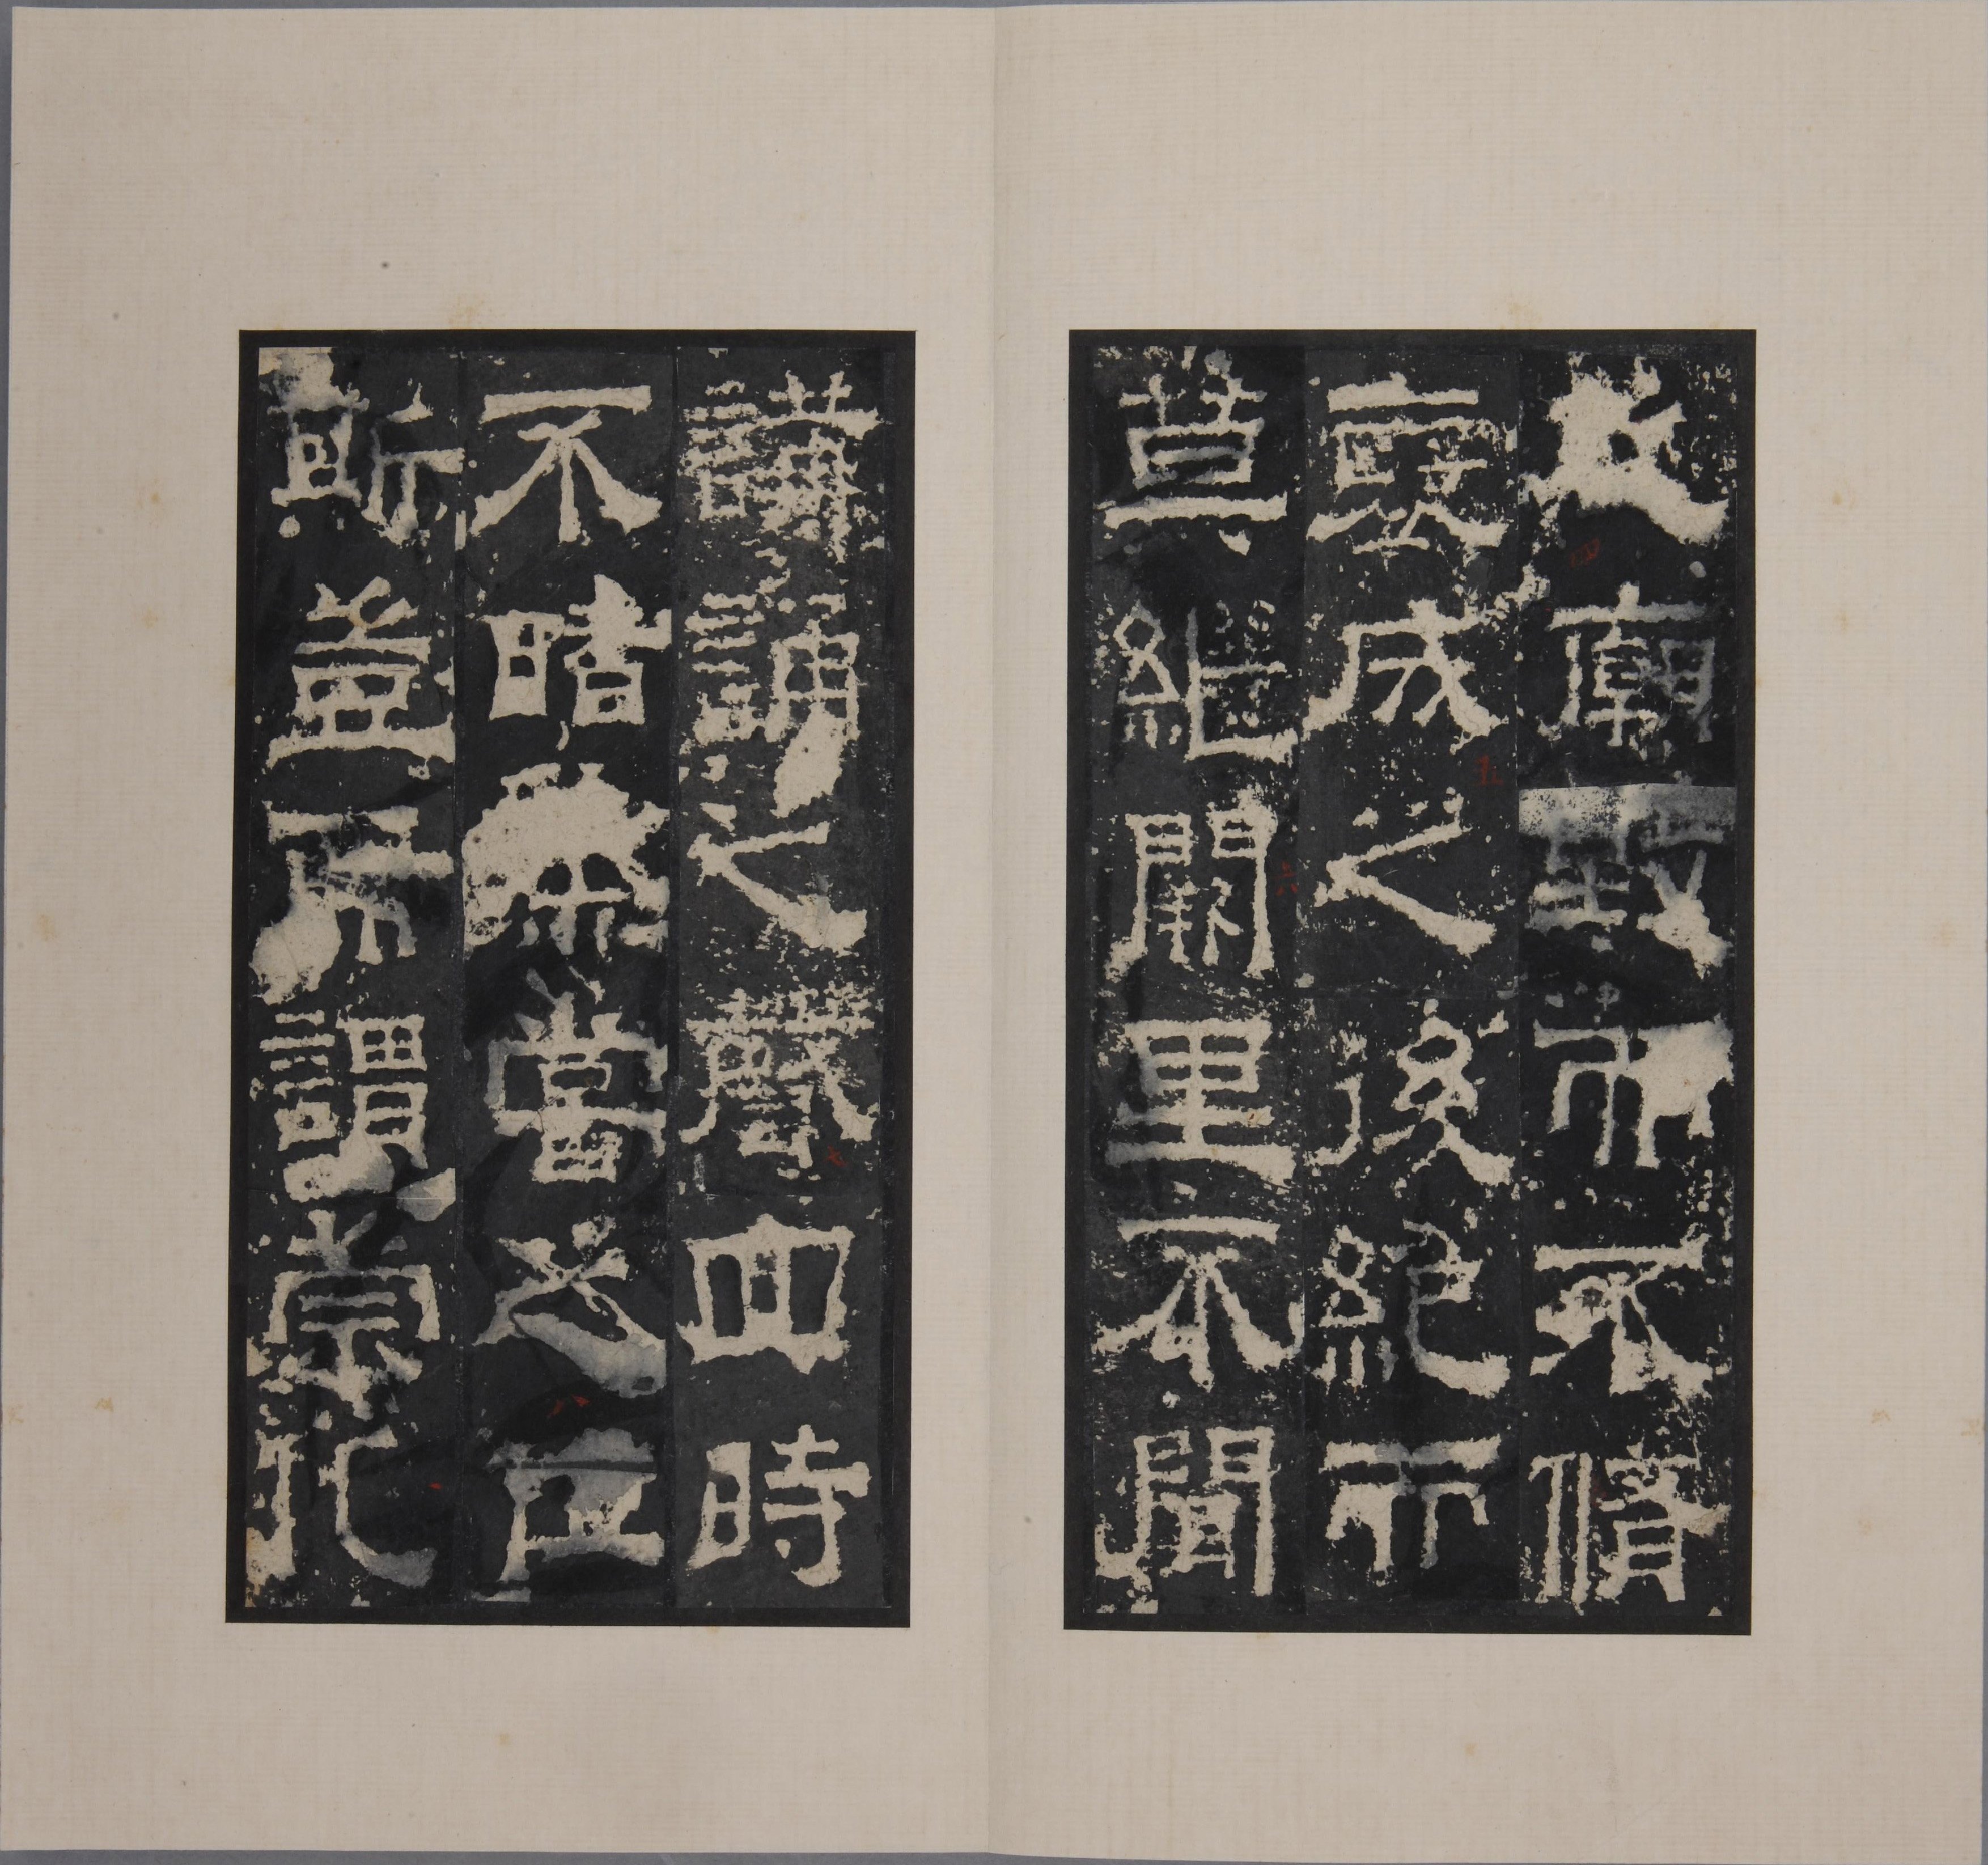 之廟毀而不脩
襃成之後絕而
莫繼闕里不聞
講誦之聲四時
不睹蒸嘗之位
斯豈所謂崇化